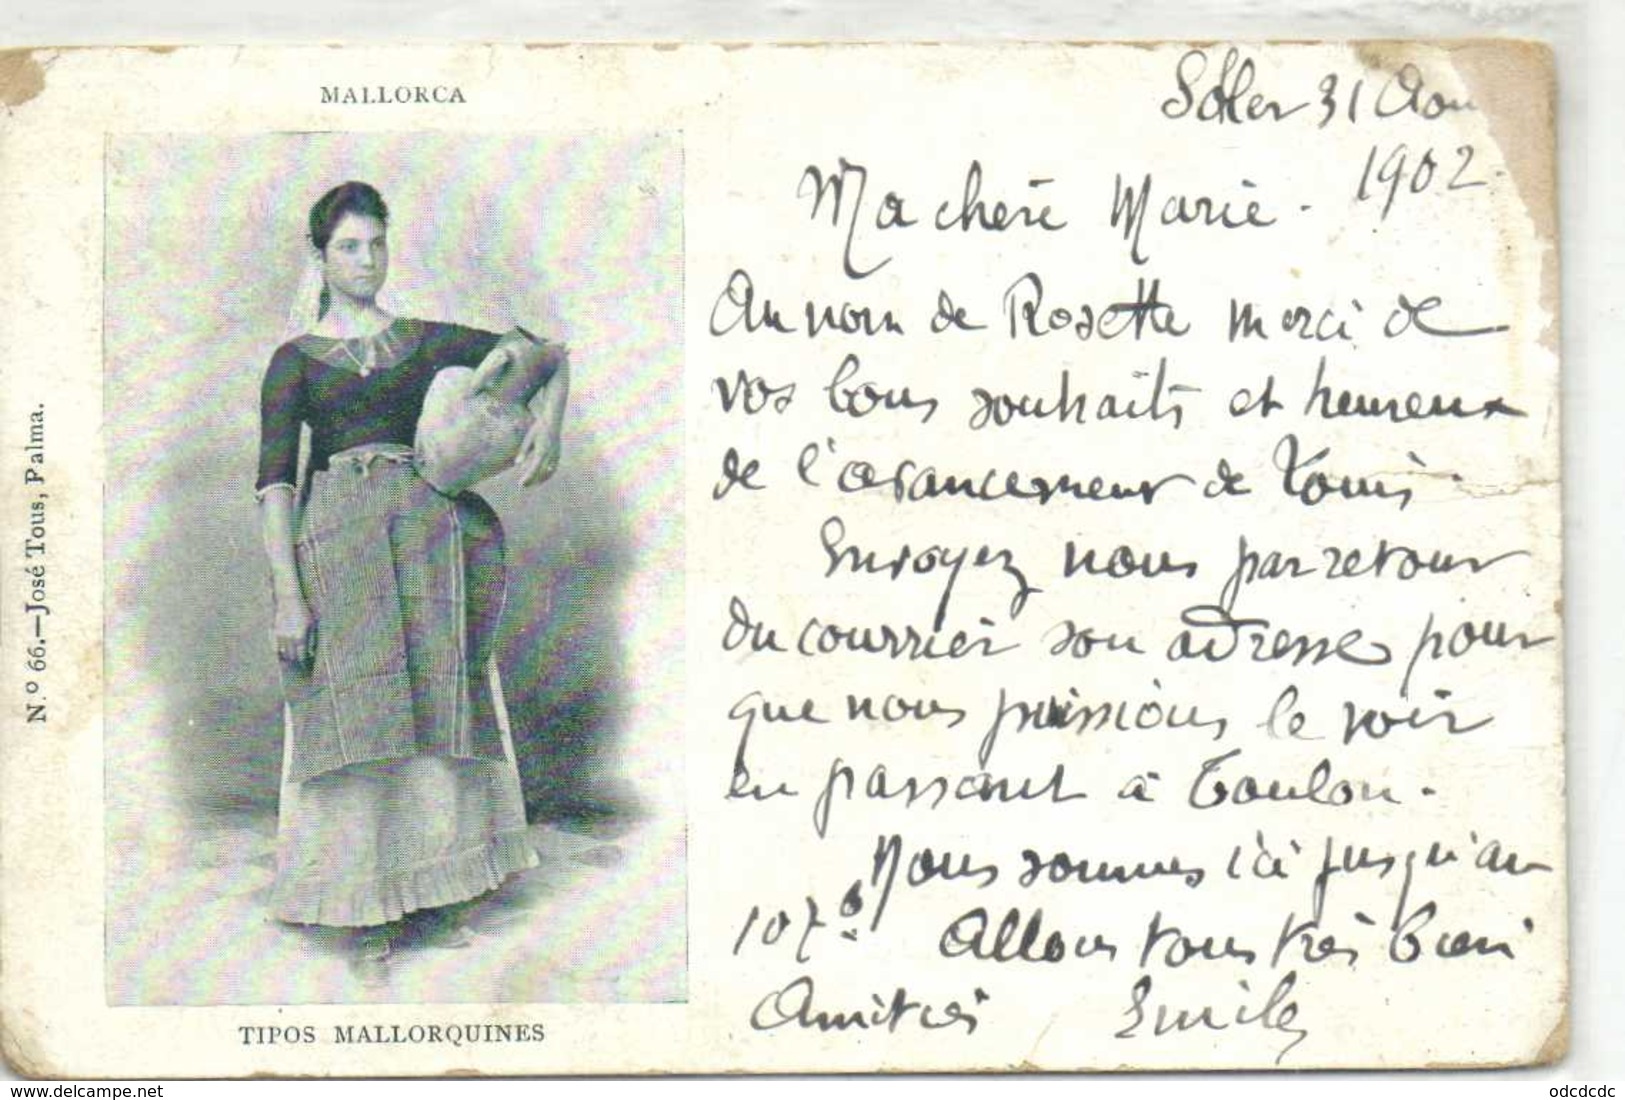 MALLORCA
N.º 66.—José Tous, Palma.
TIPOS MALLORQUINES
Soller 31 Aou
1902.
Ma chère Marie.
Au nom de Rosette merci de
vos bons souhaits et heureux
de l'avancement de Louis.
Envoyez nous par retour
du courrier son adresse pour
que nous puissions le voir
en passant à Toulon.
Nous sommes ici jusqu'au
10 7bre Allons tous très bien
Amitiés Emile
odcdcdc